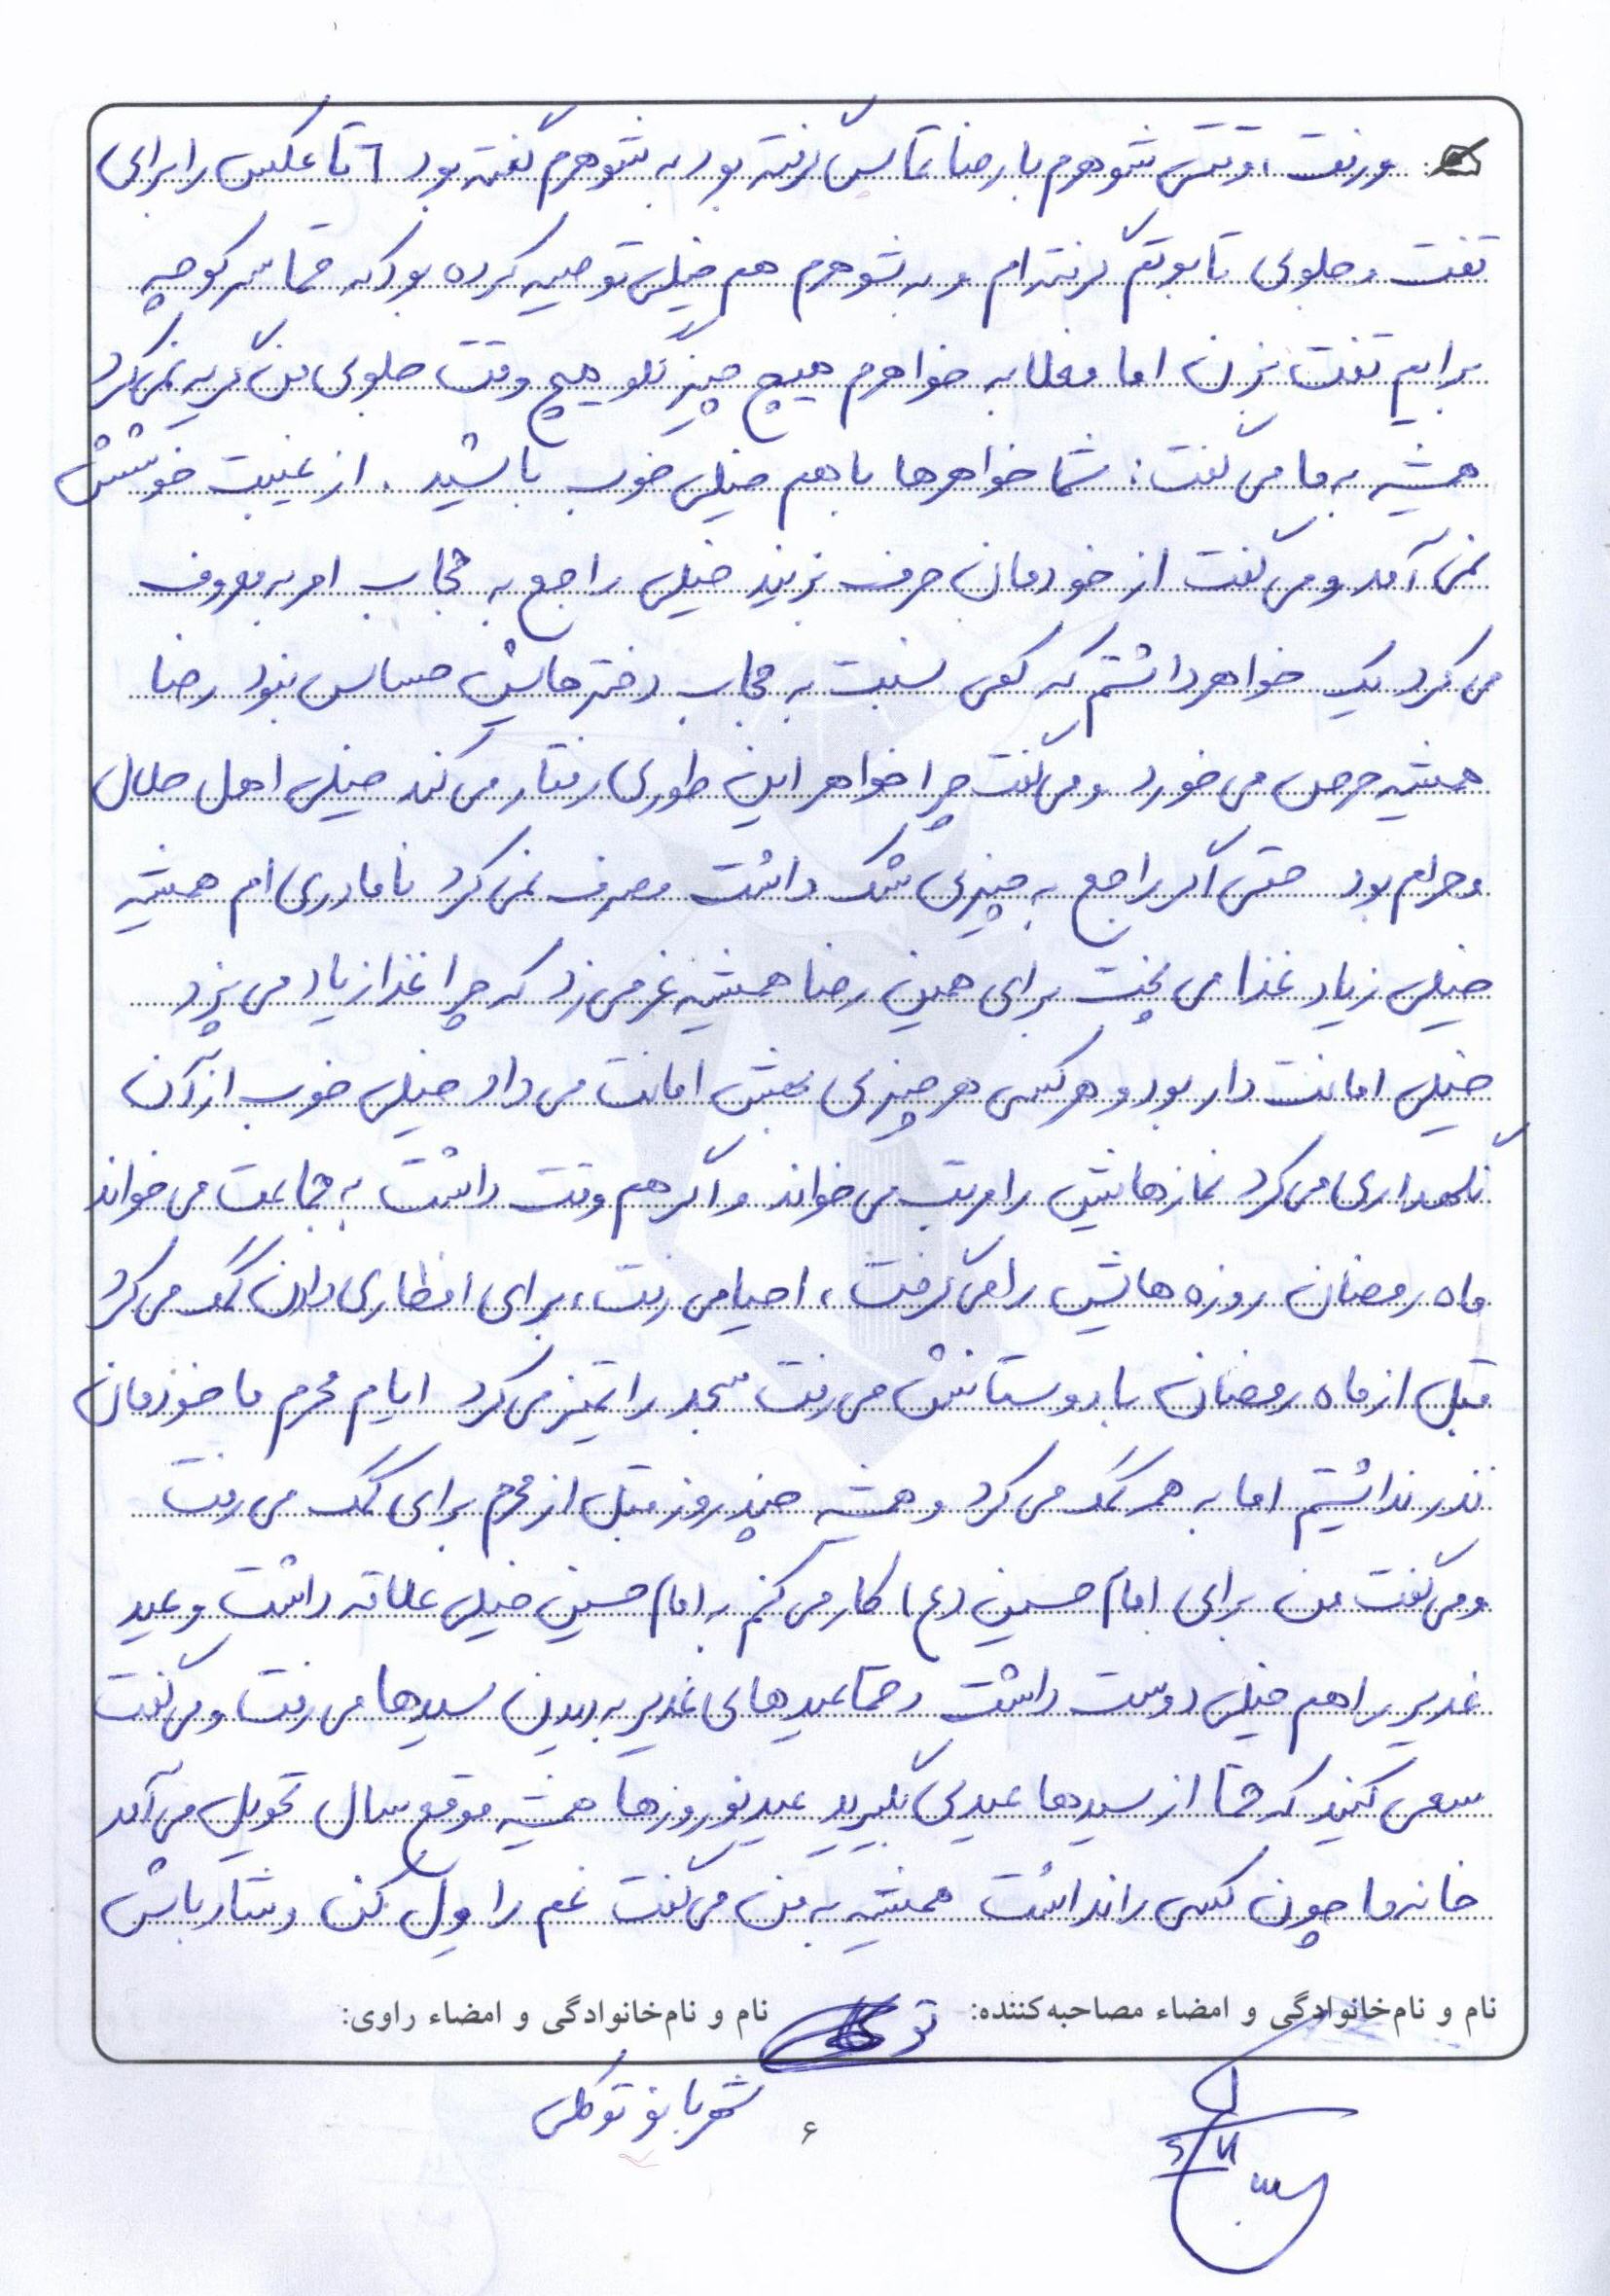 و رفت، وقتی شوهرم با رضا تماس گرفته بود به شوهرم گفته بود ٦ تا عکس را برای
تفت و جلوی تابوتم گرفته‌ام و به شوهرم هم خیلی توصیه کرده بود که حتما سر کوچه
برایم تفت بزن اما فعلا به خواهرم هیچ چیز نگو هیچ وقت جلوی من گریه نمی‌کرد
همیشه به ما می‌گفت: شما خواهرها با هم خیلی خوب باشید. از غیبت خوشش
نمی‌آمد و می‌گفت از خودمان حرف بزنید خیلی راجع به حجاب امر به معروف
می‌کرد یک خواهر داشتم که کمی نسبت به حجاب دخترهایش حساس نبود رضا
همیشه حرص می‌خورد و می‌گفت چرا خواهر این طوری رفتار می‌کند خیلی اهل حلال
و حرام بود حتی اگر راجع به چیزی شک داشت مصرف نمی‌کرد نامادری ام همیشه
خیلی زیاد غذا می‌پخت برای همین رضا همیشه غر می‌زد که چرا غذا زیاد می‌پزد
خیلی امانت دار بود و هر کسی هر چیزی بهش امانت می‌داد خیلی خوب از آن
نگهداری می‌کرد نمازهایش را مرتب می‌خواند و اگر هم وقت داشت به جماعت می‌خواند
ماه رمضان روزه هایش را می‌گرفت، احیا می رفت، برای افطاری دادن کمک می‌کرد
قبل از ماه رمضان با دوستانش می‌رفت مسجد را تمیز می‌کرد ایام محرم ما خودمان
نذر نداشتیم اما به همه کمک می‌کرد و همیشه چند روز قبل از محرم برای کمک می رفت
و می‌گفت من برای امام حسین (ع) کار می‌کنم به امام حسین خیلی علاقه داشت و عید
غدیر را هم خیلی دوست داشت و حتما عیدهای غدیر به دیدن سیدها می‌رفت و می‌گفت
سعی کنید که حتما از سیدها عیدی بگیرید عید نوروزها همیشه موقع سال تحویل می‌آمد
خانه ما چون کسی را نداشت همیشه به من می‌گفت غم را ول کن و شاد باش
نام و نام‌خانوادگی و امضاء مصاحبه‌کننده: نام و نام‌خانوادگی و امضاء راوی:
شهربانو توکلی
۶